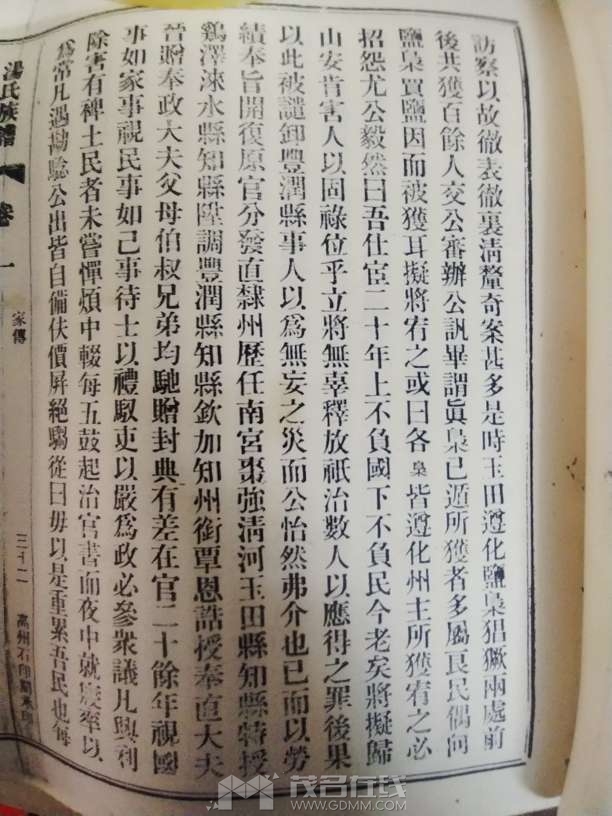 訪察以故徹表徹裏淸釐奇案甚多是時玉田遵化鹽梟猖獗兩處前
後共獲百餘人交公審辦公訊畢謂眞梟已遁所獲者多屬良民偶向
鹽梟買鹽因而被獲耳擬將宥之或曰各梟皆遵化州主所獲宥之必
招怨尤公毅然曰吾仕宦二十年上不負國下不負民今老矣將擬歸
山安肯害人以固祿位乎立將無辜釋放祇治數人以應得之罪後果
以此被譴卸豐潤縣事人以爲無妄之災而公怡然弗介也已而以勞
績奉旨開復原官分發直隸州歷任南宮棗強淸河玉田縣知縣特授
鷄澤淶水縣知縣陞調豐潤縣知縣欽加知州銜覃恩誥授奉直大夫
晉贈奉政大夫父母伯叔兄弟均馳贈封典有差在官二十餘年視國
事如家事視民事如己事待士以禮馭吏以嚴爲政必參衆議凡興利
除害有裨士民者未嘗憚煩中輟每五鼓起治官書而夜中就寢率以
爲常凡遇勘騐公出皆自備伕價屛絕騶從曰毋以是重累吾民也每
湯氏族譜 卷一 家傳 三十二 高州石印
茂名在线
WWW.GDMM.COM